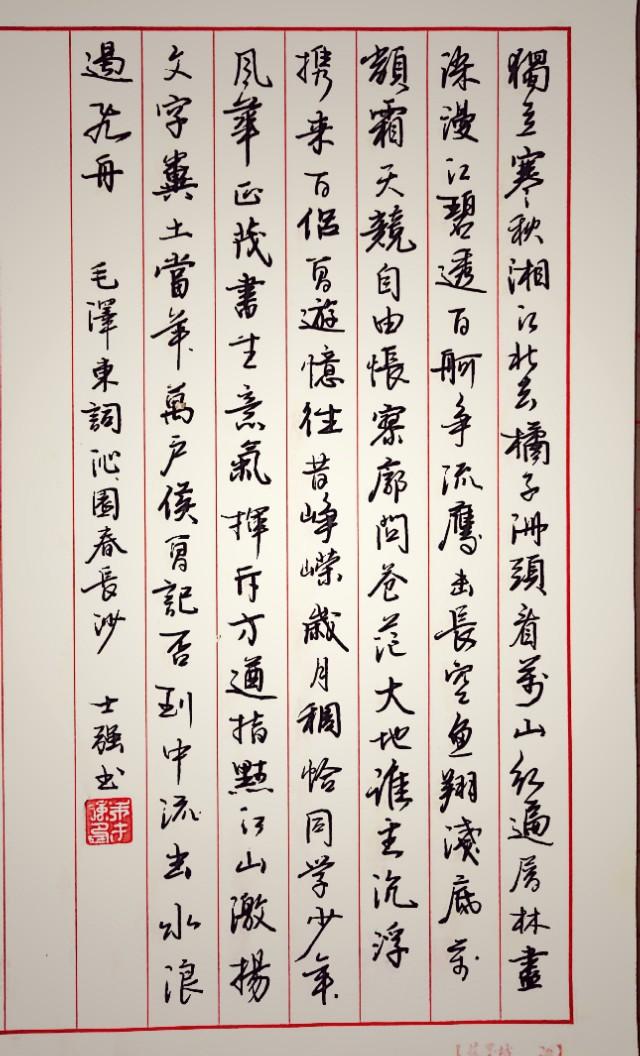 獨立寒秋湘江北去橘子洲頭看萬山红遍層林盡
染漫江碧透百舸争流鷹击長空鱼翔淺底萬
類霜天競自由悵寥廓問苍茫大地谁主沉浮
携来百侣曾遊憶往昔峥嵘歲月稠恰同学少年
風華正茂書生意氣揮斥方遒指點江山激揚
文字糞土當年萬户侯曾記否到中流击水浪
遏飛舟 毛澤東詞沁園春長沙 士强书